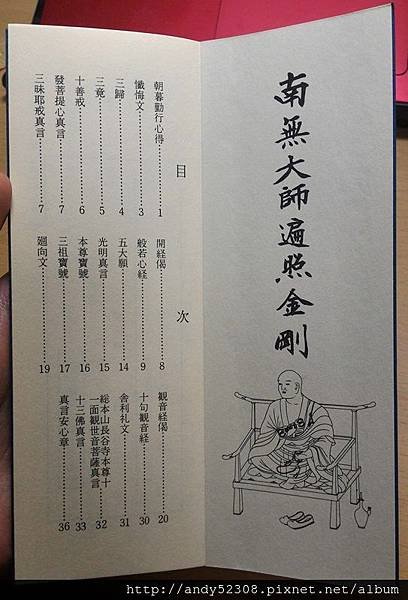 南無大師遍照金剛
目次
朝暮勤行心得……1
懺悔文……3
三歸……4
三竟……5
十善戒……6
發菩提心真言……7
三昧耶戒真言……7
開経偈……8
般若心経……9
五大願……14
光明真言……15
本尊寶號……16
三祖寶號……17
廻向文……19
観音経偈……20
十句観音経……30
舎利礼文……31
総本山長谷寺本尊十
一面観世音菩薩真言……32
十三佛真言……33
真言安心章……36
http://andy52308.pixnet.net/album